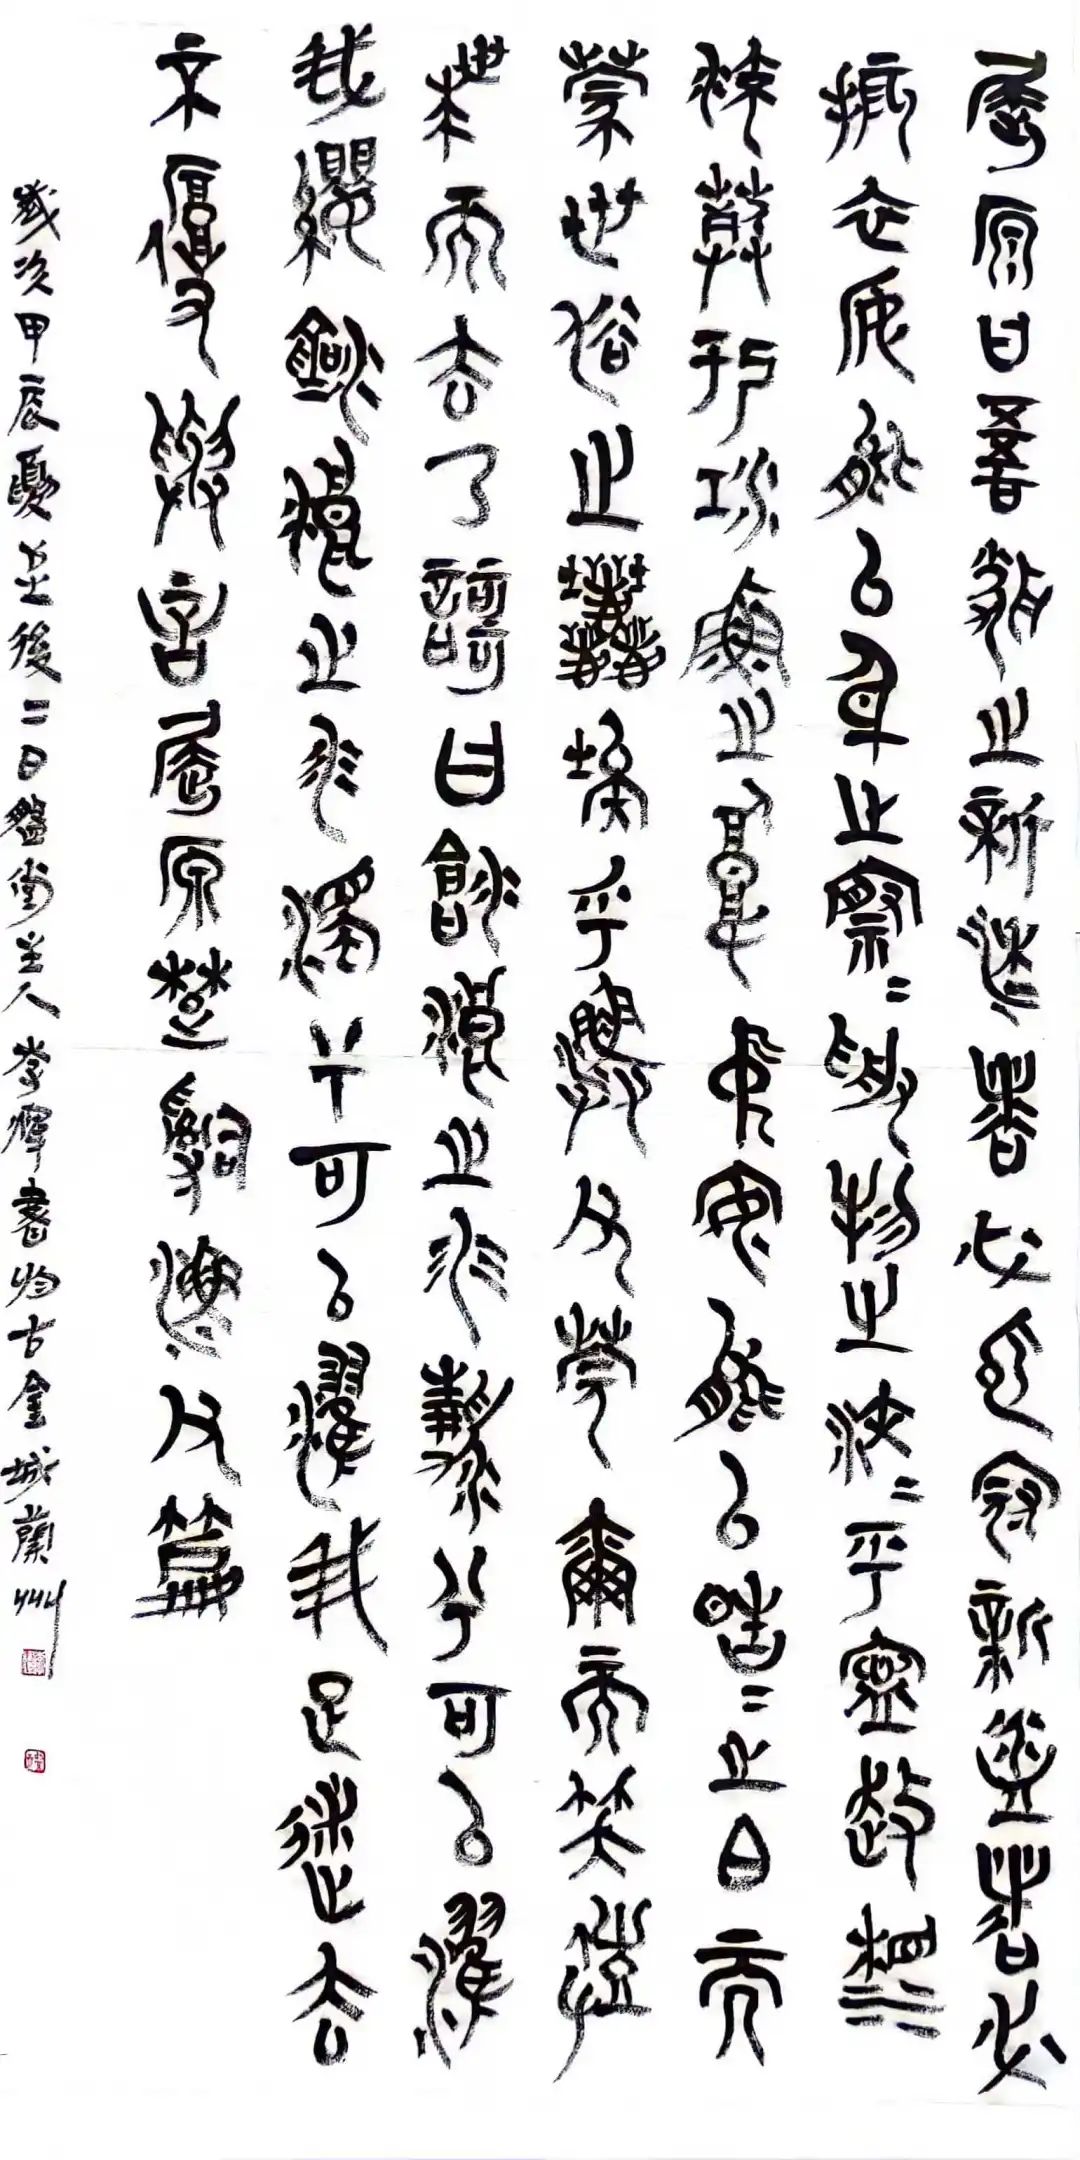 屈原曰吾聞之新沐者必彈冠新浴者必
振衣安能以身之察=受物之汶=乎寧赴湘流
葬於江魚之腹中安能以皓=之白而
蒙世俗之塵埃乎漁父莞爾而笑鼓
枻而去乃歌曰滄浪之水清兮可以濯
我纓滄浪之水濁兮可以濯我足遂去
不復與言屈原楚辭漁父篇
歲次甲辰夏至後二日盤堂主人李輝書於古金城蘭州